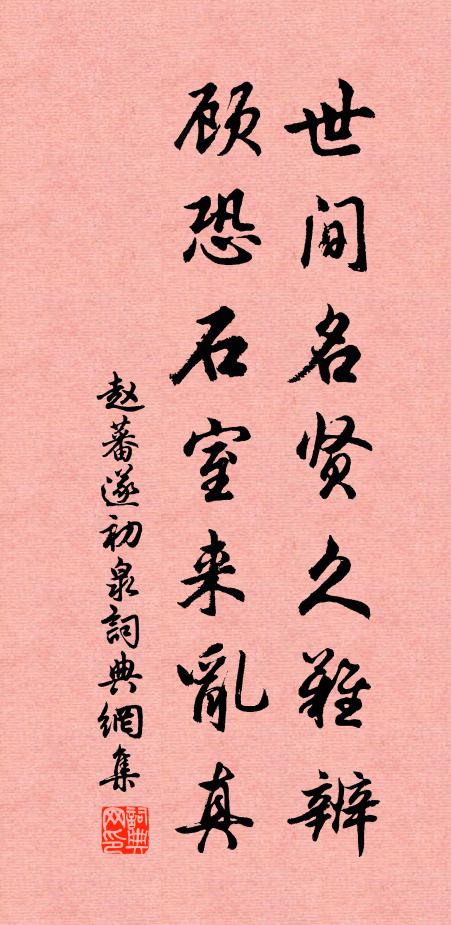 世间名贤久难辨
顾恐石室来乱真
赵蕃遂初泉詞典網集
詞典网印